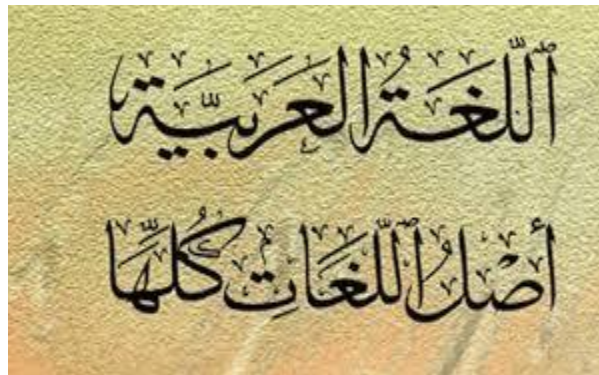 ٱللُّغَةُ العَرَبِيَّة
أَصْلُ ٱللُّغَاتِ كُلِّهَا